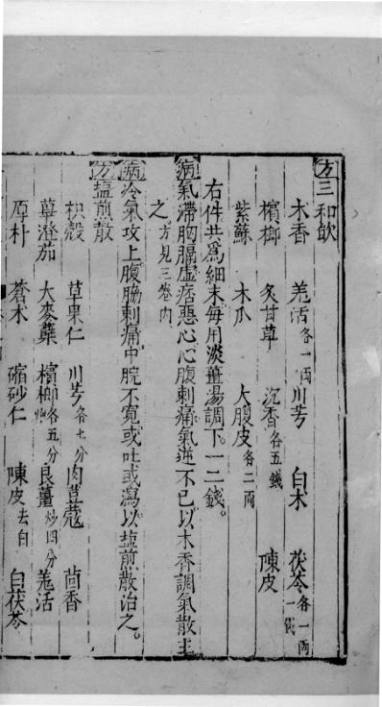 方三和飲
木香 羌活各一兩 川芎 白木 茯苓各一兩
檳榔 炙甘草 沉香各五錢 陳皮
紫蘇 木瓜 大腹皮各二兩
右件共爲細末每用淡薑湯調下一二錢。
病氣滯胸膈虛痞惡心心腹刺痛氣逆不已以木香調氣散主
之方見三卷內
病冷氣攻上腹脇刺痛中脘不寬或吐或瀉以塩煎散治之。
方塩煎散
枳殼 草果仁 川芎各七分 肉荳蔻 茴香
蓽澄茄 大麥蘖 檳榔各五分 良薑炒四分 羌活
厚朴 蒼木 縮砂仁 陳皮去白 白茯苓